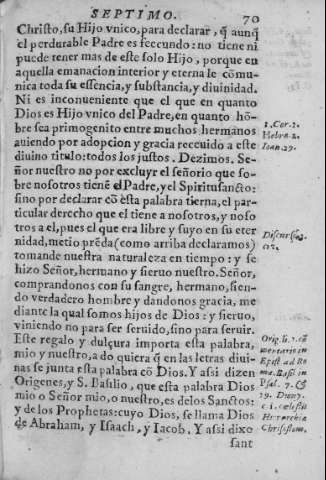 SEPTIMO. 70
Christo, su Hijo vnico, para declarar, q̃ aunq̃
el perdurable Padre es feecundo: no tiene ni
puede tener mas de este solo Hijo, porque en
aquella emanacion interior y eterna le cõmu-
nica toda su essencia, y substancia, y diuinidad.
Ni es inconueniente que el que en quanto
Dios es Hijo vnico del Padre, en quanto hõ-
bre sea primogenito entre muchos hermanos
auiendo por adopcion y gracia receuido a este
diuino titulo: todos los justos. Dezimos. Se-
ñor nuestro no por excluyr el señorio que so-
bre nosotros tienẽ el Padre, y el Spiritusancto:
sino por declarar cõ esta palabra tierna, el par-
ticular derecho que el tiene a nosotros, y noso
tros a el, pues el que era libre y suyo en su eter
nidad, metio prẽda (como arriba declaramos)
tomande nuestra naturaleza en tiempo: y se
hizo Señor, hermano y sieruo nuestro. Señor,
comprandonos con su sangre, hermano, sien-
do verdadero hombre y dandonos gracia, me
diante la qual somos hijos de Dios: y sieruo,
viniendo no para ser seruido, sino para seruir.
Este regalo y dulçura importa esta palabra,
mio y nuestro, a do quiera q̃ en las letras diui-
nas se junta esta palabra cõ Dios. Y assi dizen
Origenes, y S. Basilio, que esta palabra Dios
mio o Señor mio, o nuestro, es de los Sanctos:
y de los Prophetas: cuyo Dios, se llama Dios
de Abraham, y Isaach, y Iacob. Y assi dixo
sant
1. Cor. 1.
Hebra. 2.
Ioan. 27.
Discurso.
Orig. li. 1. cõ
mentariis in
Epist. ad Ro
ma. Basil. in
Psal. 7. &
29. Diony.
c. 1. cœlestis
Hierarchiæ
Chrisostom.